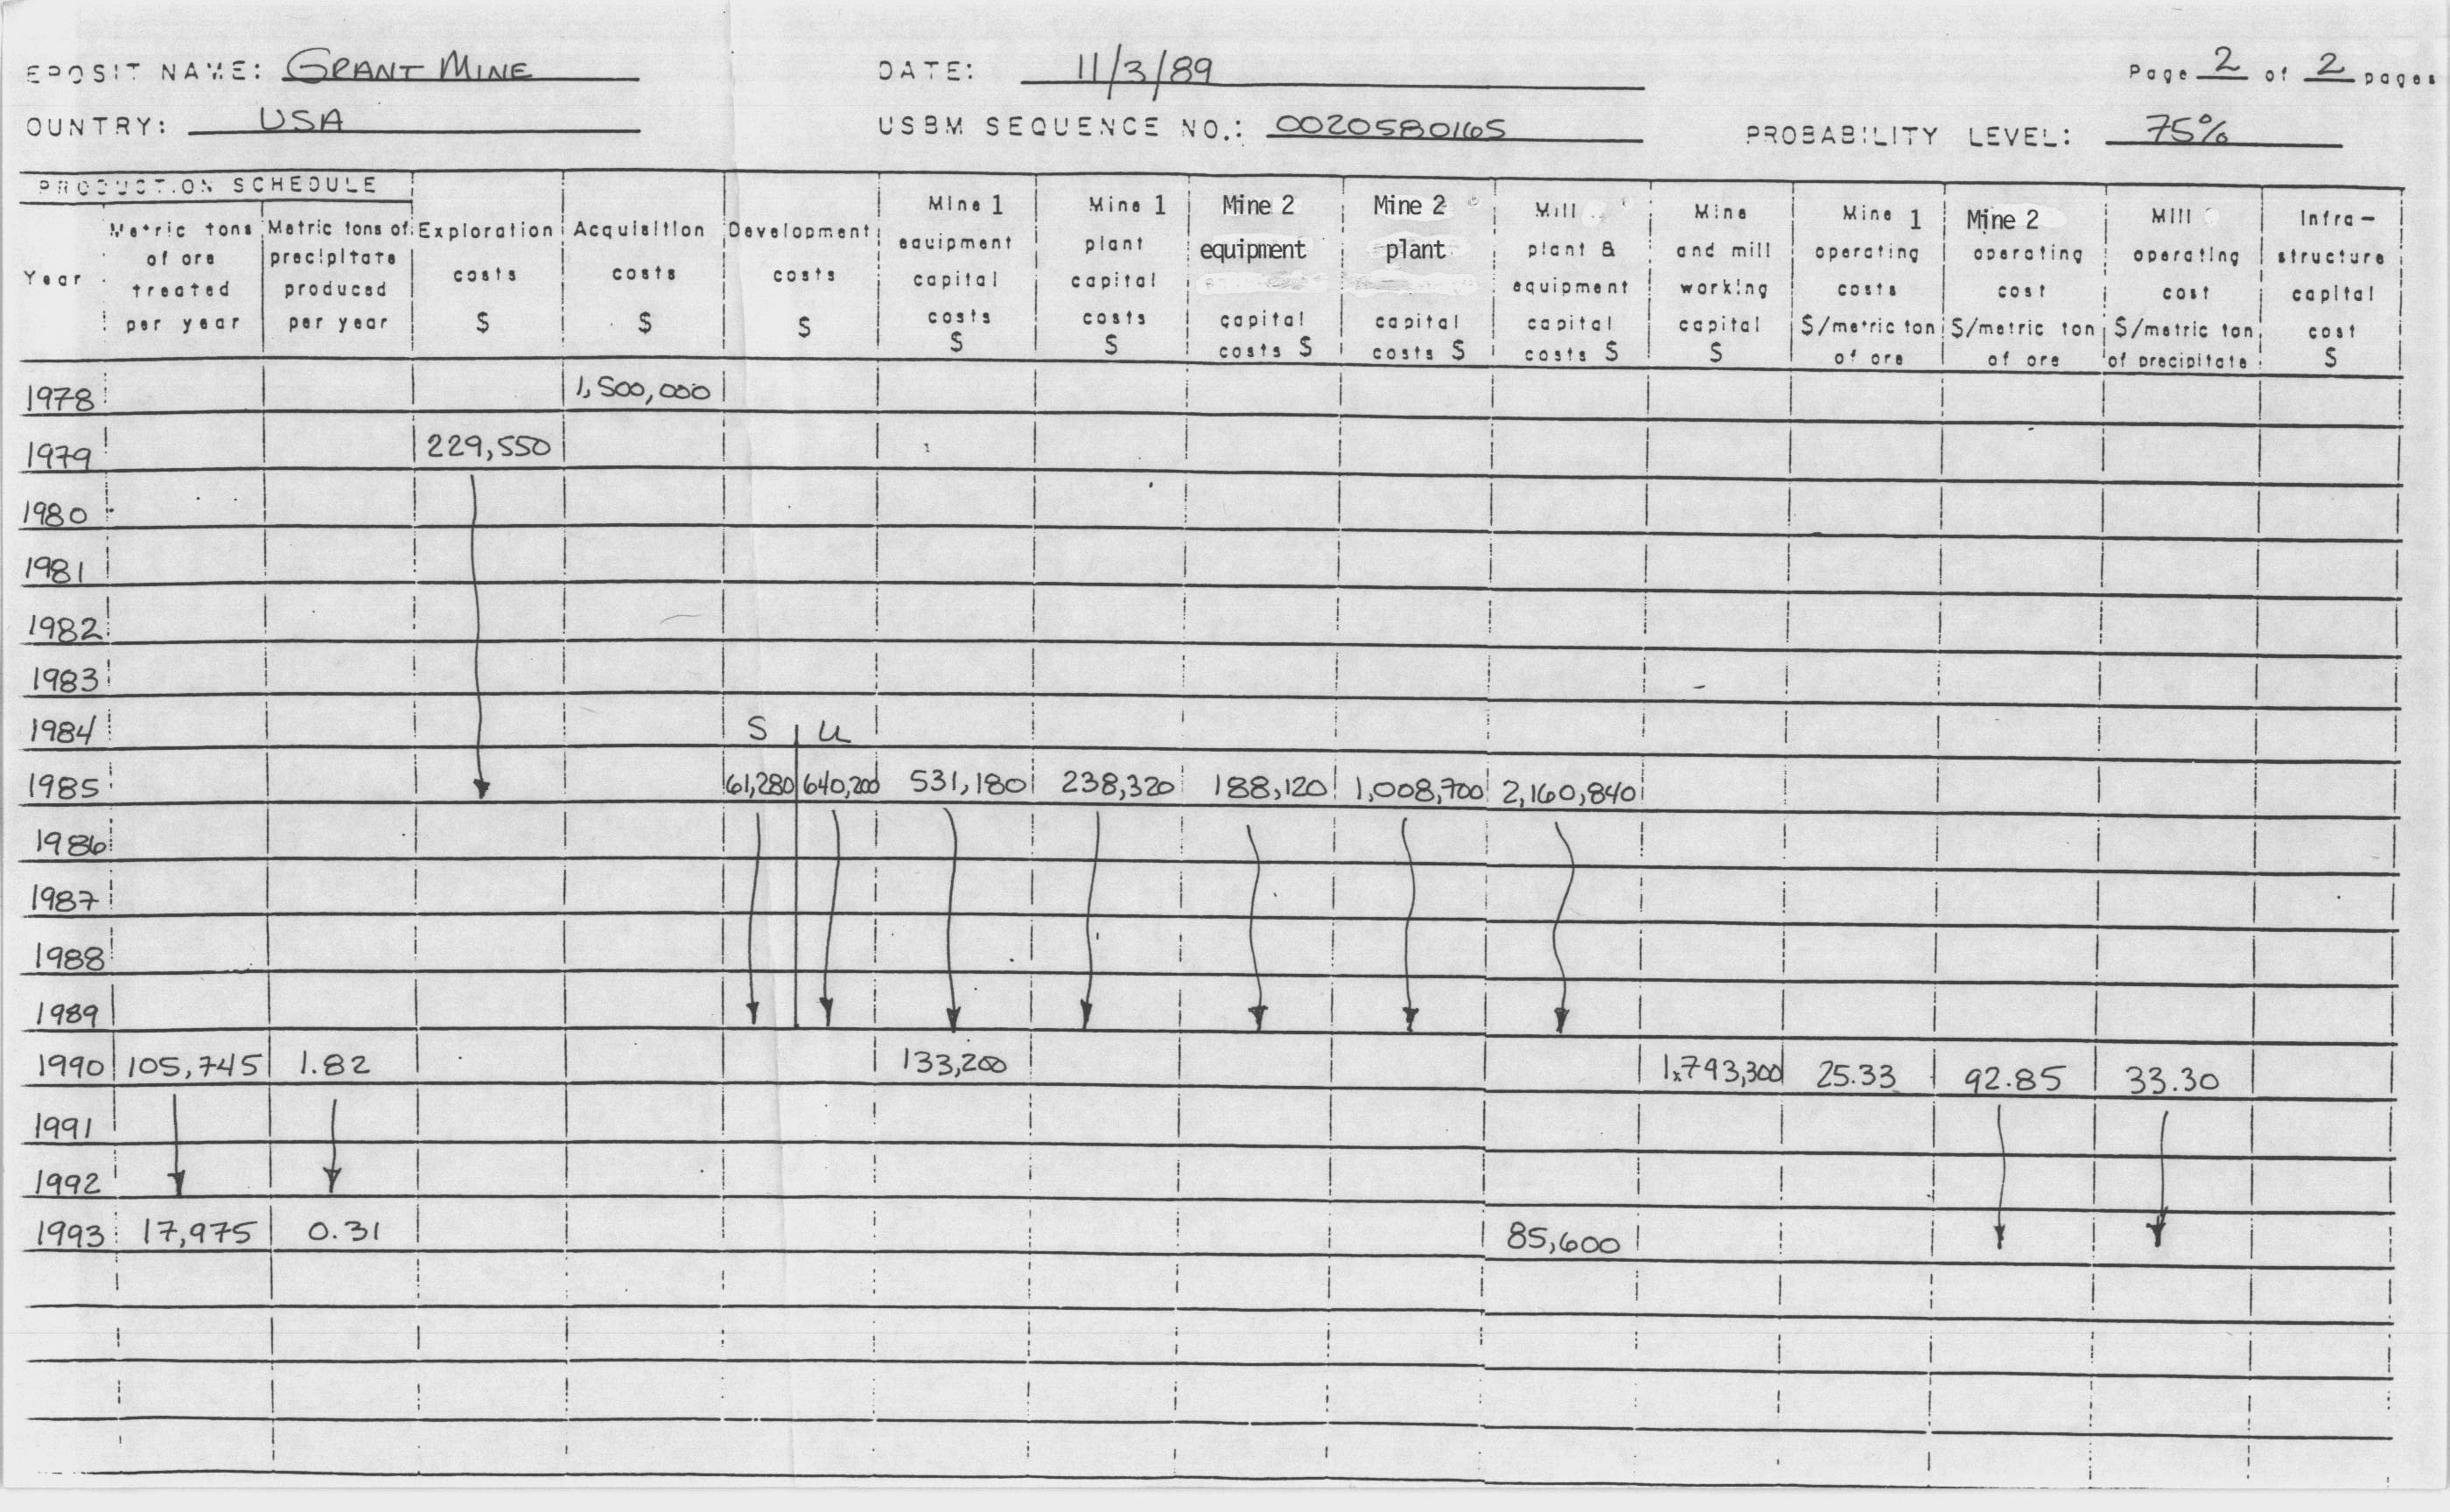 EPOSIT NAME: GRANT MINE DATE: 11/3/89 Page 2 of 2 pages
OUNTRY: USA USBM SEQUENCE NO.: 0020580165 PROBABILITY LEVEL: 75%
PRODUCTION SCHEDULE
Year
Metric tons of ore treated per year
Metric tons of precipitate produced per year
Exploration costs $
Acquisition costs $
Development costs $
Mine 1 equipment capital costs $
Mine 1 plant capital costs $
Mine 2 equipment capital costs $
Mine 2 plant capital costs $
Mill plant & equipment capital costs $
Mine and mill working capital $
Mine 1 operating costs $/metric ton of ore
Mine 2 operating cost $/metric ton of ore
Mill operating cost $/metric ton of precipitate
Infra-structure capital cost $
1978 1,500,000
1979 229,550
1980
1981
1982
1983
1984 S U
1985 61,280 640,200 531,180 238,320 188,120 1,008,700 2,160,840
1986
1987
1988
1989
1990 105,745 1.82 133,200 1,793,300 25.33 92.85 33.30
1991
1992
1993 17,975 0.31 85,600